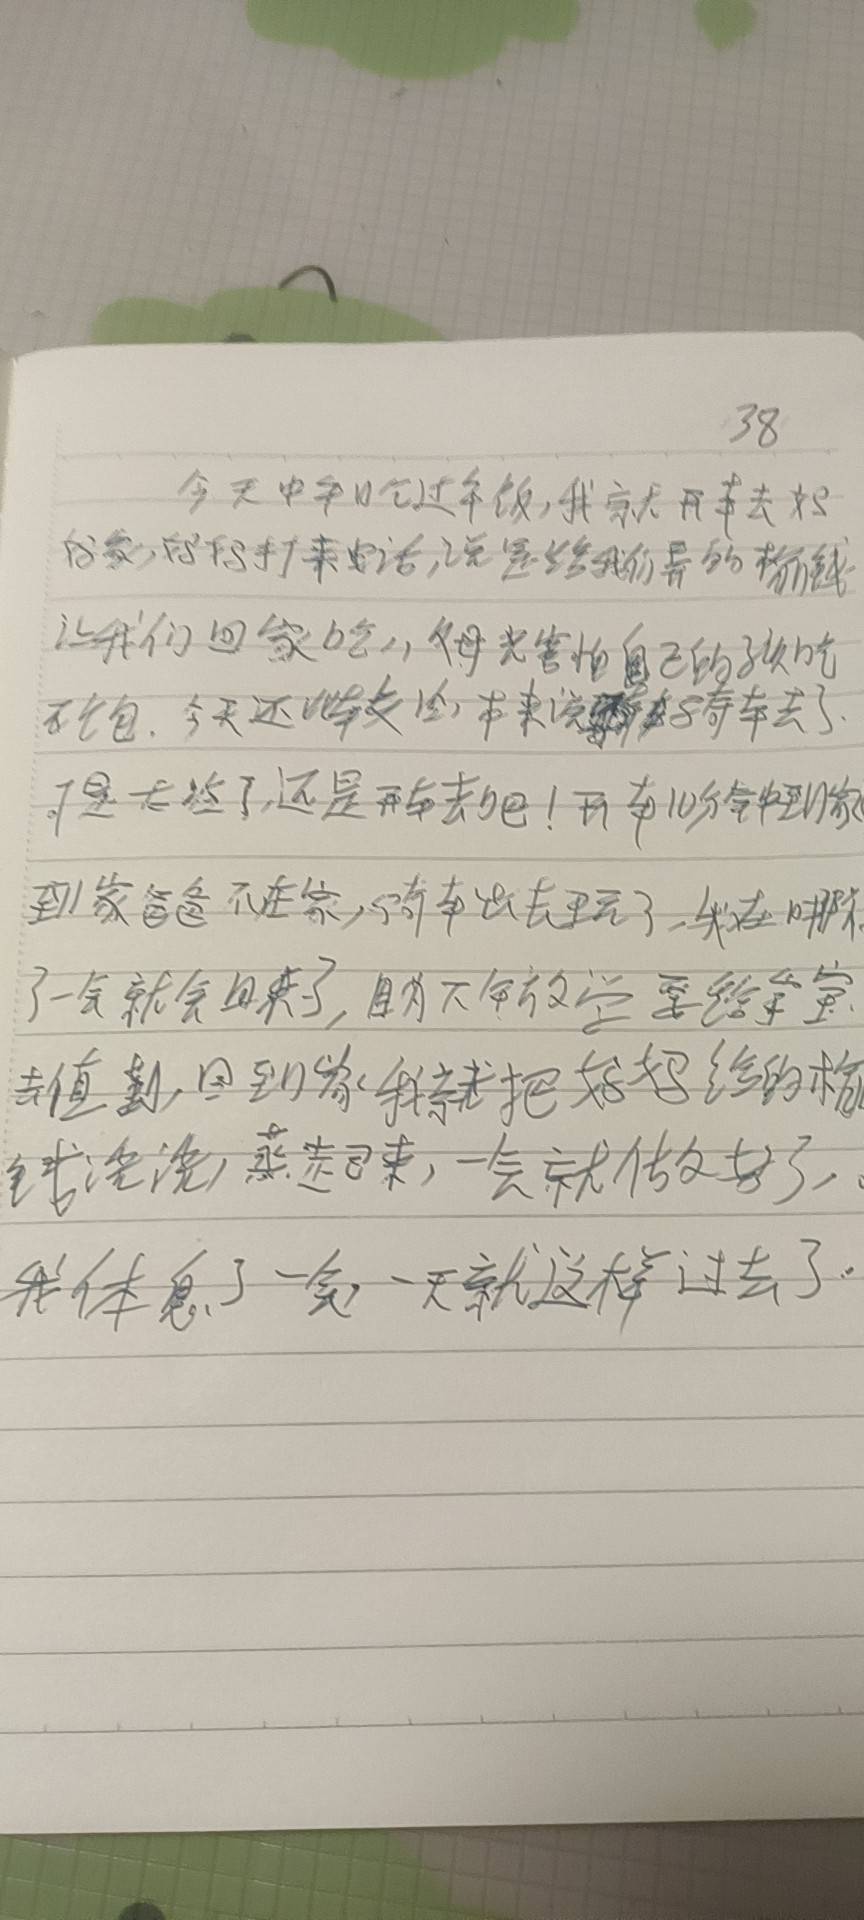 38
今天中午吃过午饭,我就开车去妈
妈家,妈妈打来电话,说是给我们弄的榆钱
让我们回家吃,,父母总害怕自己的孩吃
不饱.今天还比较冷,本来说骑车去了.
可是太冷了,还是开车去吧!开车10分钟到家
到家爸爸不在家,骑车出去玩了,我在哪
了一会就会回来了,因为下午放学要给宝宝
去值勤,回到家我就把妈妈给的榆
钱洗洗,蒸起来,一会就做好了,
我休息了一会,一天就这样过去了.